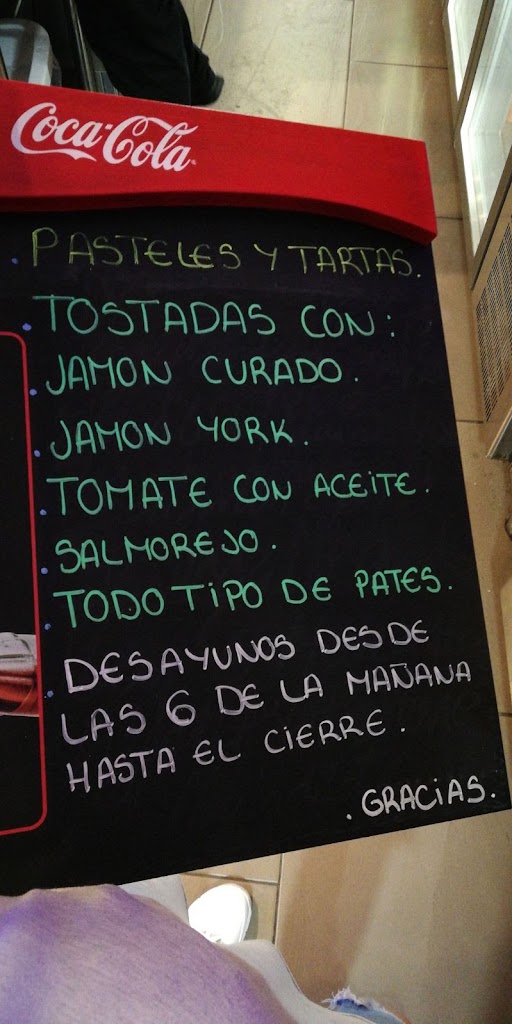 Coca-Cola
. PASTELES Y TARTAS.
. TOSTADAS CON:
. JAMON CURADO.
. JAMON YORK.
. TOMATE CON ACEITE.
. SALMOREJO.
. TODO TIPO DE PATES.
. DESAYUNOS DESDE
LAS 6 DE LA MAÑANA
HASTA EL CIERRE.
. GRACIAS.